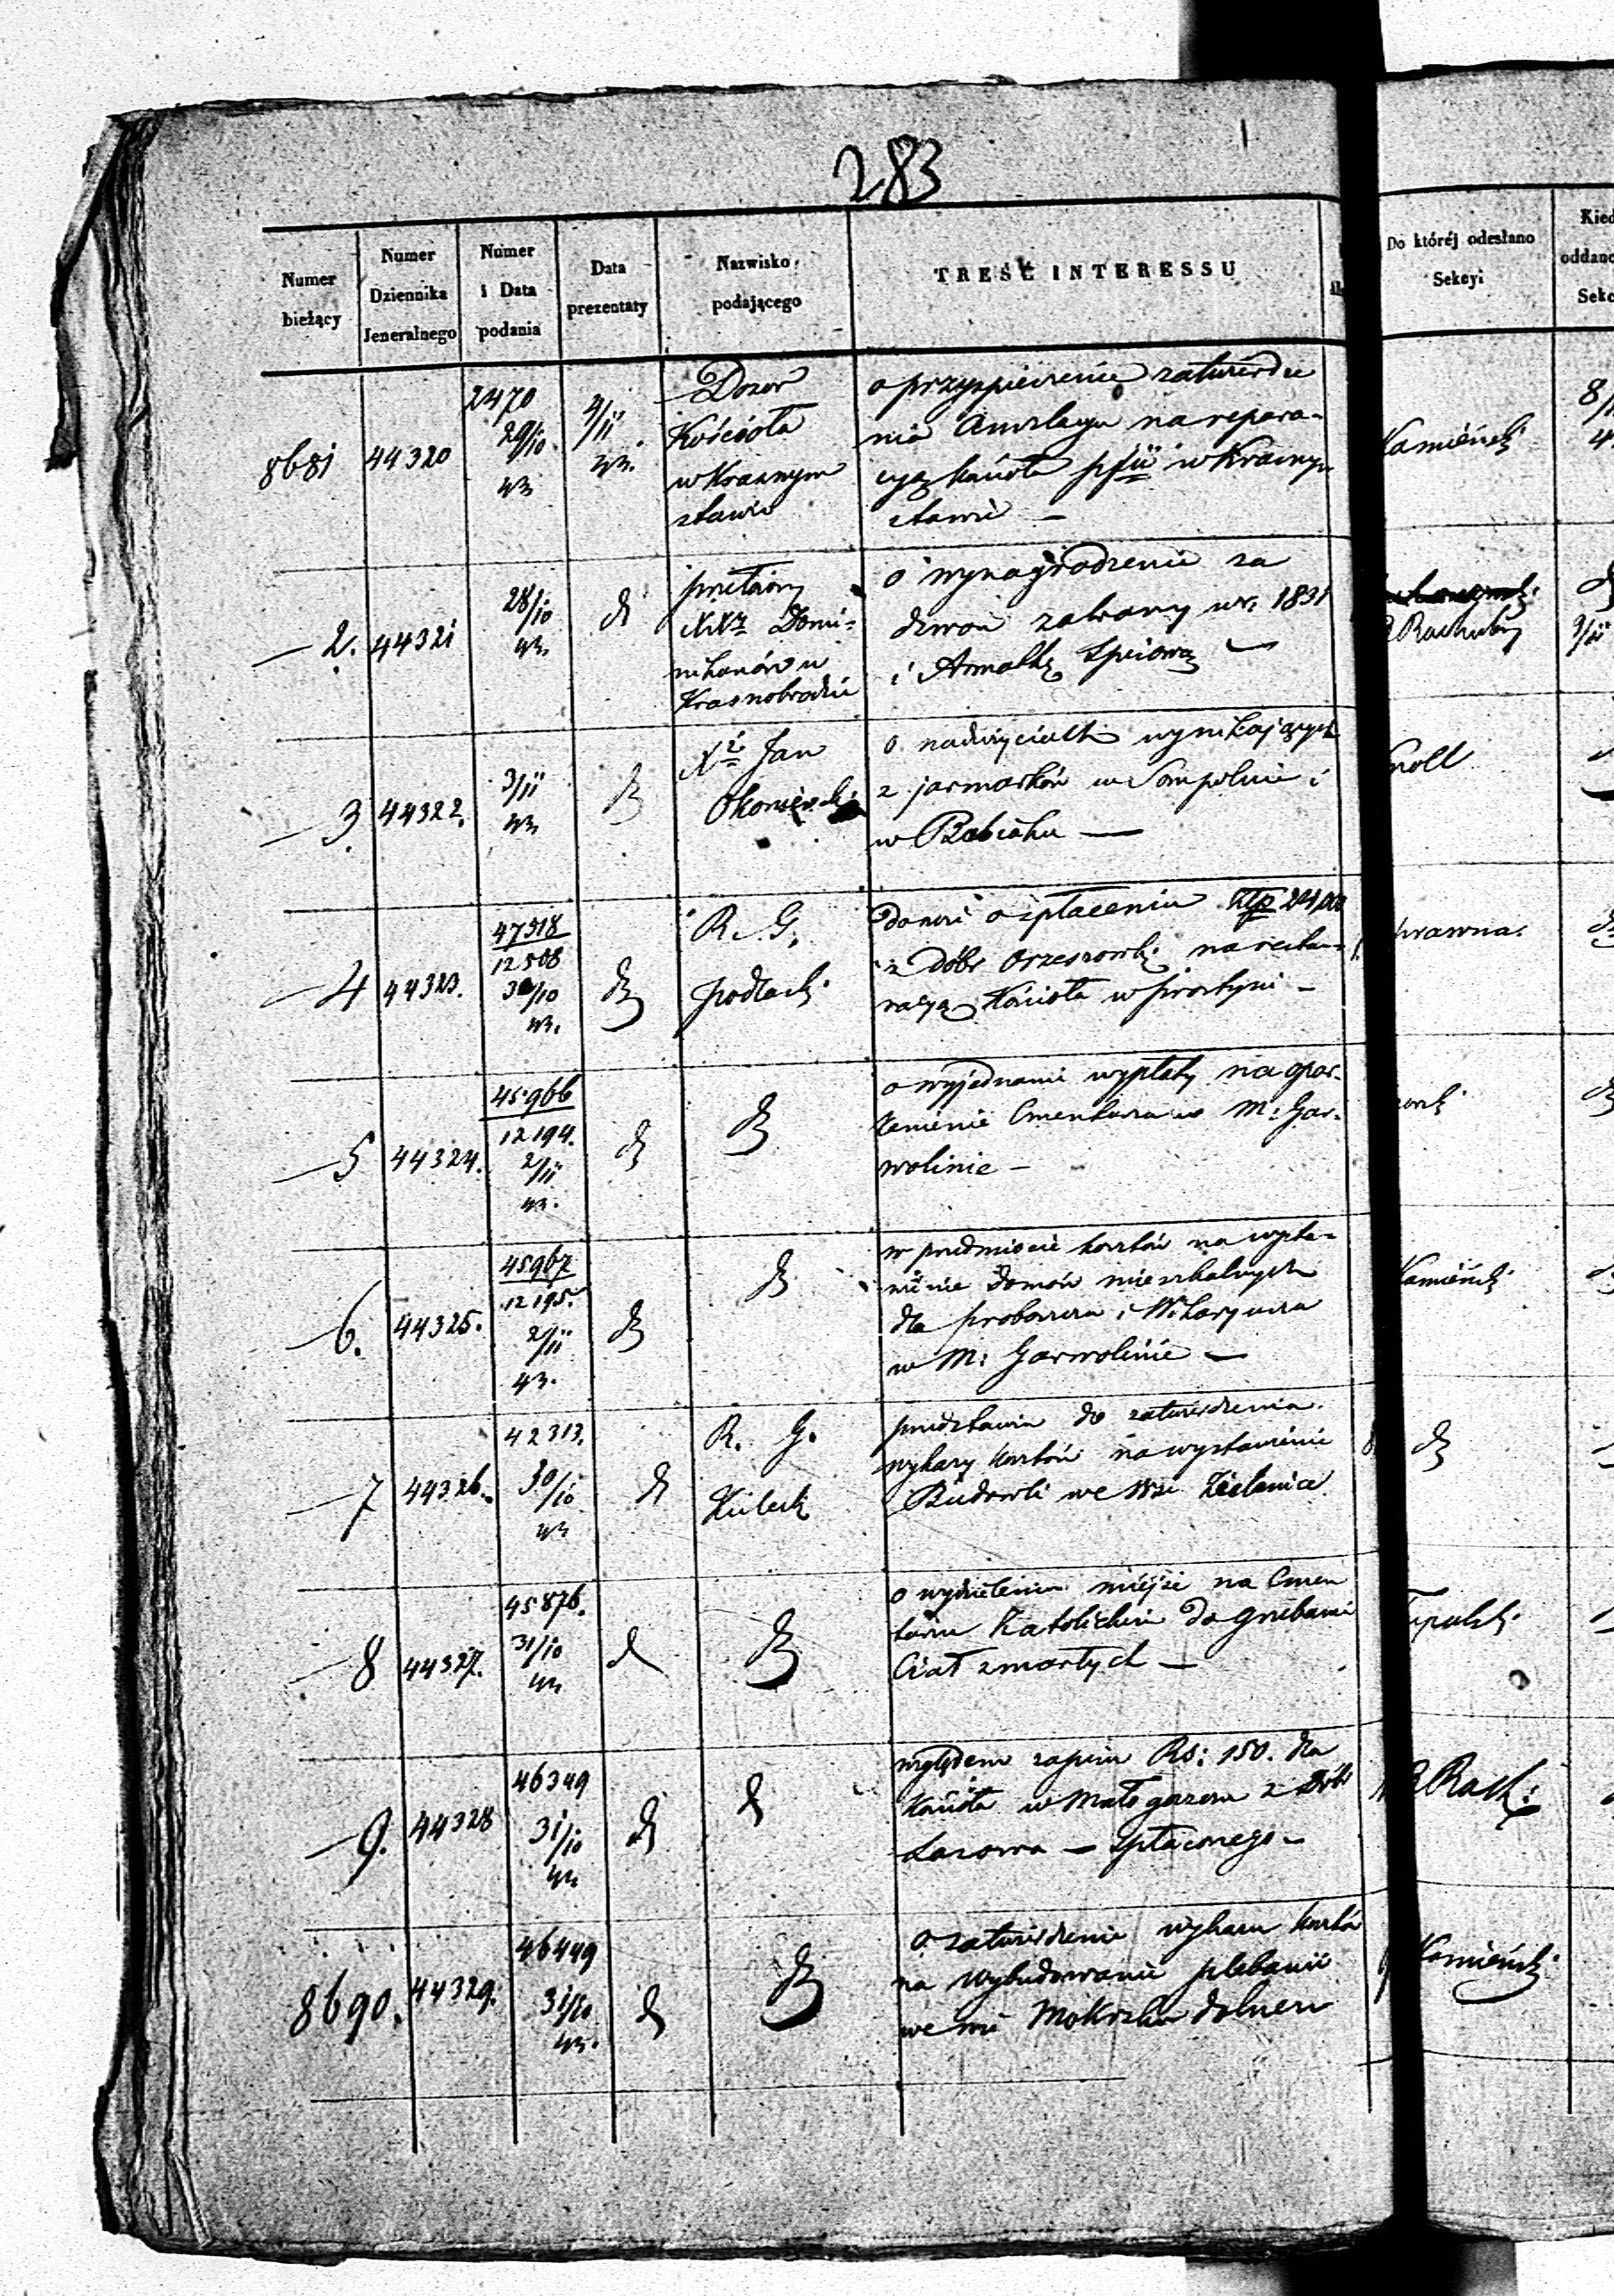 283
Numer bieżący
Numer Dziennika Jeneralnego
Numer i Data podania
Data prezentaty
Nazwisko podającego
TREŚĆ INTERESSU
Do któréj odesłano Sekcyi
8681
44320
2470
29/10
43
4/11
43.
Dozor
Kościoła
w Krasnym
stawie
o przyspieszenie zatwierdze
nia Anszlagu na repara-
cyą kościoła w Krasnym
stawie —
Kamiński
— 2.
44321
28/10
43.
d
przełożony
XXży Domi-
nikanów w
Krasnobrodzie
o wynagrodzenie za
dzwon zabrany w r: 1831
i Armatkę Spiżową —
— 3.
44322.
3/11
43
d
Xdz Jan
o nadużyciach wynikających
z jarmarków w Sompolnie i
w Babiaku —
— 4
44323.
47318
12508
30/10
43.
d
R. G.
Podlaski
donosi o spłaceniu Złp 24,000
z dóbr Orzeszówki na
kościoła w Prostyni —
— 5
44324.
45966
12194.
2/11
43.
d
d
o wyjednanie wypłaty na
Cmentarza w M: Gar-
wolinie —
— 6.
44325.
45967
12195.
2/11
43.
d
d
w przedmiocie kosztów na wysta-
wienie domów mieszkalnych
dla proboszcza i Wikaryusza
w M: Garwolinie —
Kamiński
— 7
44326.
42313.
30/10
43
d
R. G.
Kielecki
przedstawia do zatwierdzenia
wykazy kosztów na wystawienie
Budowli we Wsi
d
— 8
44327.
45876.
31/10
43
d
d
o wydzielenie miejsc na Cmen
tarzu Katolickim do grzebania
Ciał zmarłych —
— 9.
44328
46349
31/10
43
d
d
względem zapisu Rs: 150. dla
kościoła w Małogoszczu z dóbr
Lasowa — spłaconego —
8690.
44329.
46449
31/10
43.
d
d
o zatwierdzenie wykazu kosztów
na wybudowanie plebanii
we wsi Mokrsku dolnem
Kamiński